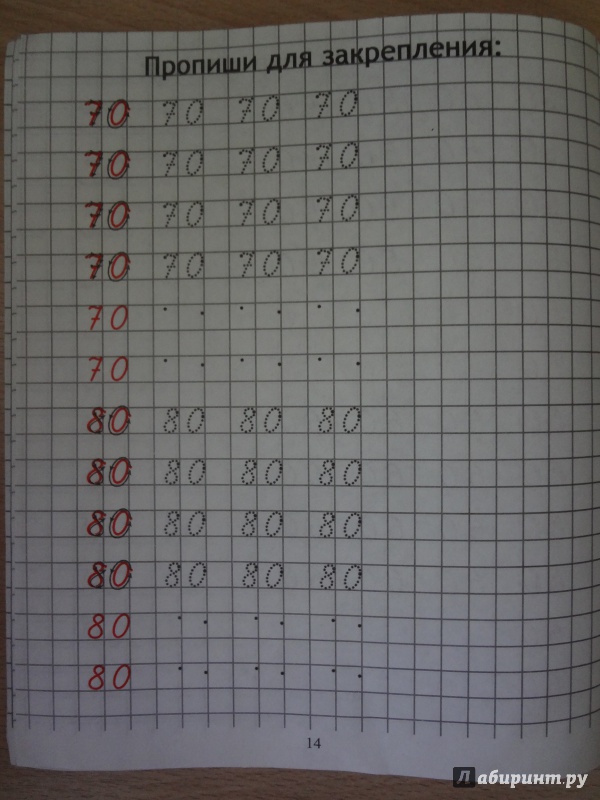 Пропиши для закрепления:
70 70 70 70
70 70 70 70
70 70 70 70
70 70 70 70
70
70
80 80 80 80
80 80 80 80
80 80 80 80
80 80 80 80
80
80
14
Лабиринт.ру